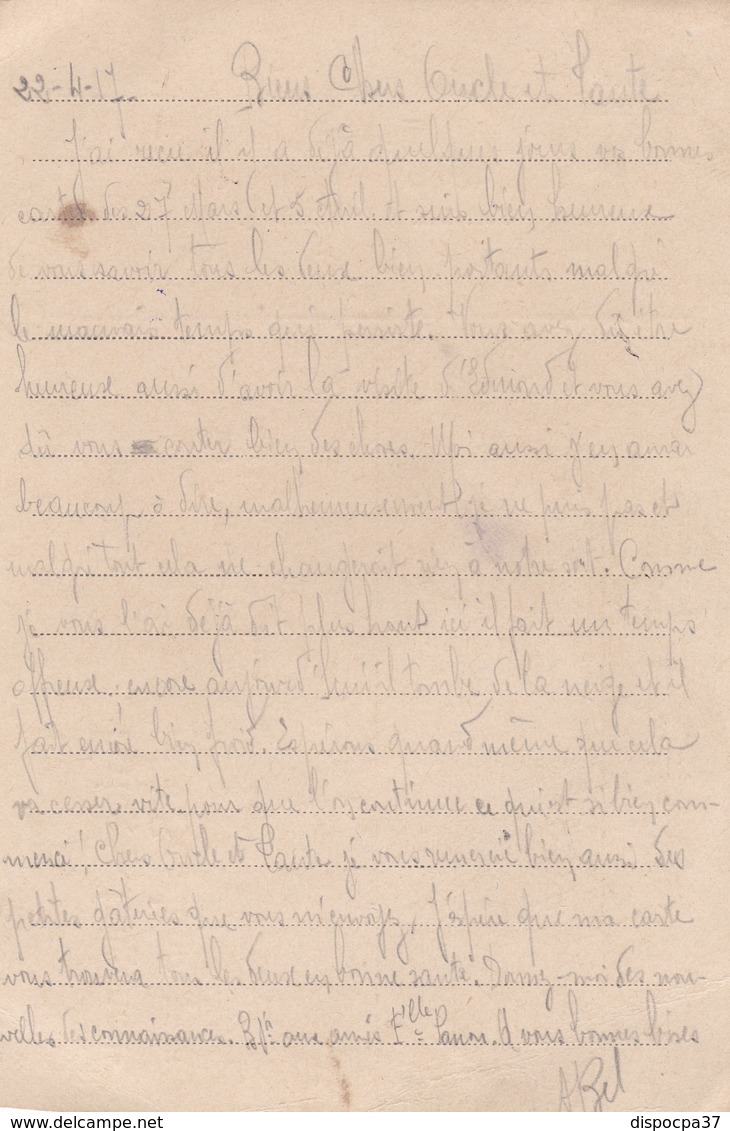 22-4-17. Biens Chers Oncle et Tante
J'ai reçu il y a déjà quelques jours vos bonnes
cartes des 27 Mars et 5 Avril. et suis bien heureux
de vous savoir tous les deux bien portants malgré
le mauvais temps qui persiste. Vous avez dû être
heureuse aussi d'avoir la visite d'Edmond et vous avez
dû vous conter bien des choses. Moi aussi j'en aurai
beaucoup à dire, malheureusement je ne puis pas et
malgré tout cela ne changerait rien à notre sort. Comme
je vous l'ai déjà dit plus haut ici il fait un temps
affreux. encore aujourd'hui il tombe de la neige et il
fait encore bien froid. Espérons quand même que cela
va cesser vite pour que l'on continue ce qui est si bien com-
mencé! Chers Oncle et Tante je vous remercie bien aussi des
petites gâteries que vous m'envoyez, J'espère que ma carte
vous trouvera tous les deux en bonne santé. Donnez-moi des nou-
velles des connaissances. aux amis Filles A vous bonnes bises
Abel
Website: dispocpa37